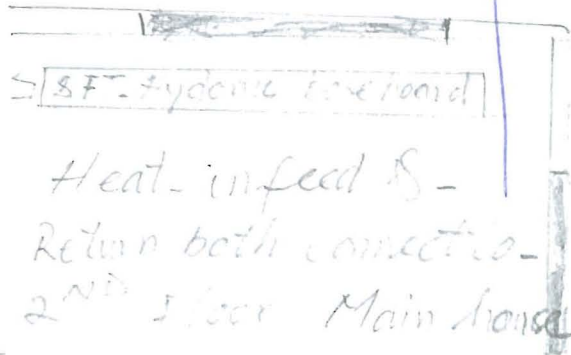 8FT - Hydonic Baseboard
Heat - infeed & -
Return both connect to -
2ND Floor Main house